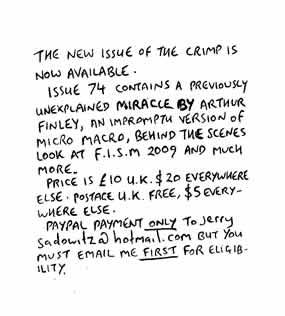 THE NEW ISSUE OF THE CRIMP IS
NOW AVAILABLE.
ISSUE 74 CONTAINS A PREVIOUSLY
UNEXPLAINED MIRACLE BY ARTHUR
FINLEY, AN IMPROMPTU VERSION OF
MICRO MACRO, BEHIND THE SCENES
LOOK AT F.I.S.M 2009 AND MUCH
MORE.
PRICE IS £10 U.K. $20 EVERYWHERE
ELSE. POSTAGE U.K. FREE, $5 EVERY-
WHERE ELSE.
PAYPAL PAYMENT ONLY TO Jerry
Sadowitz@hotmail.com BUT YOU
MUST EMAIL ME FIRST FOR ELIGIB-
ILITY.